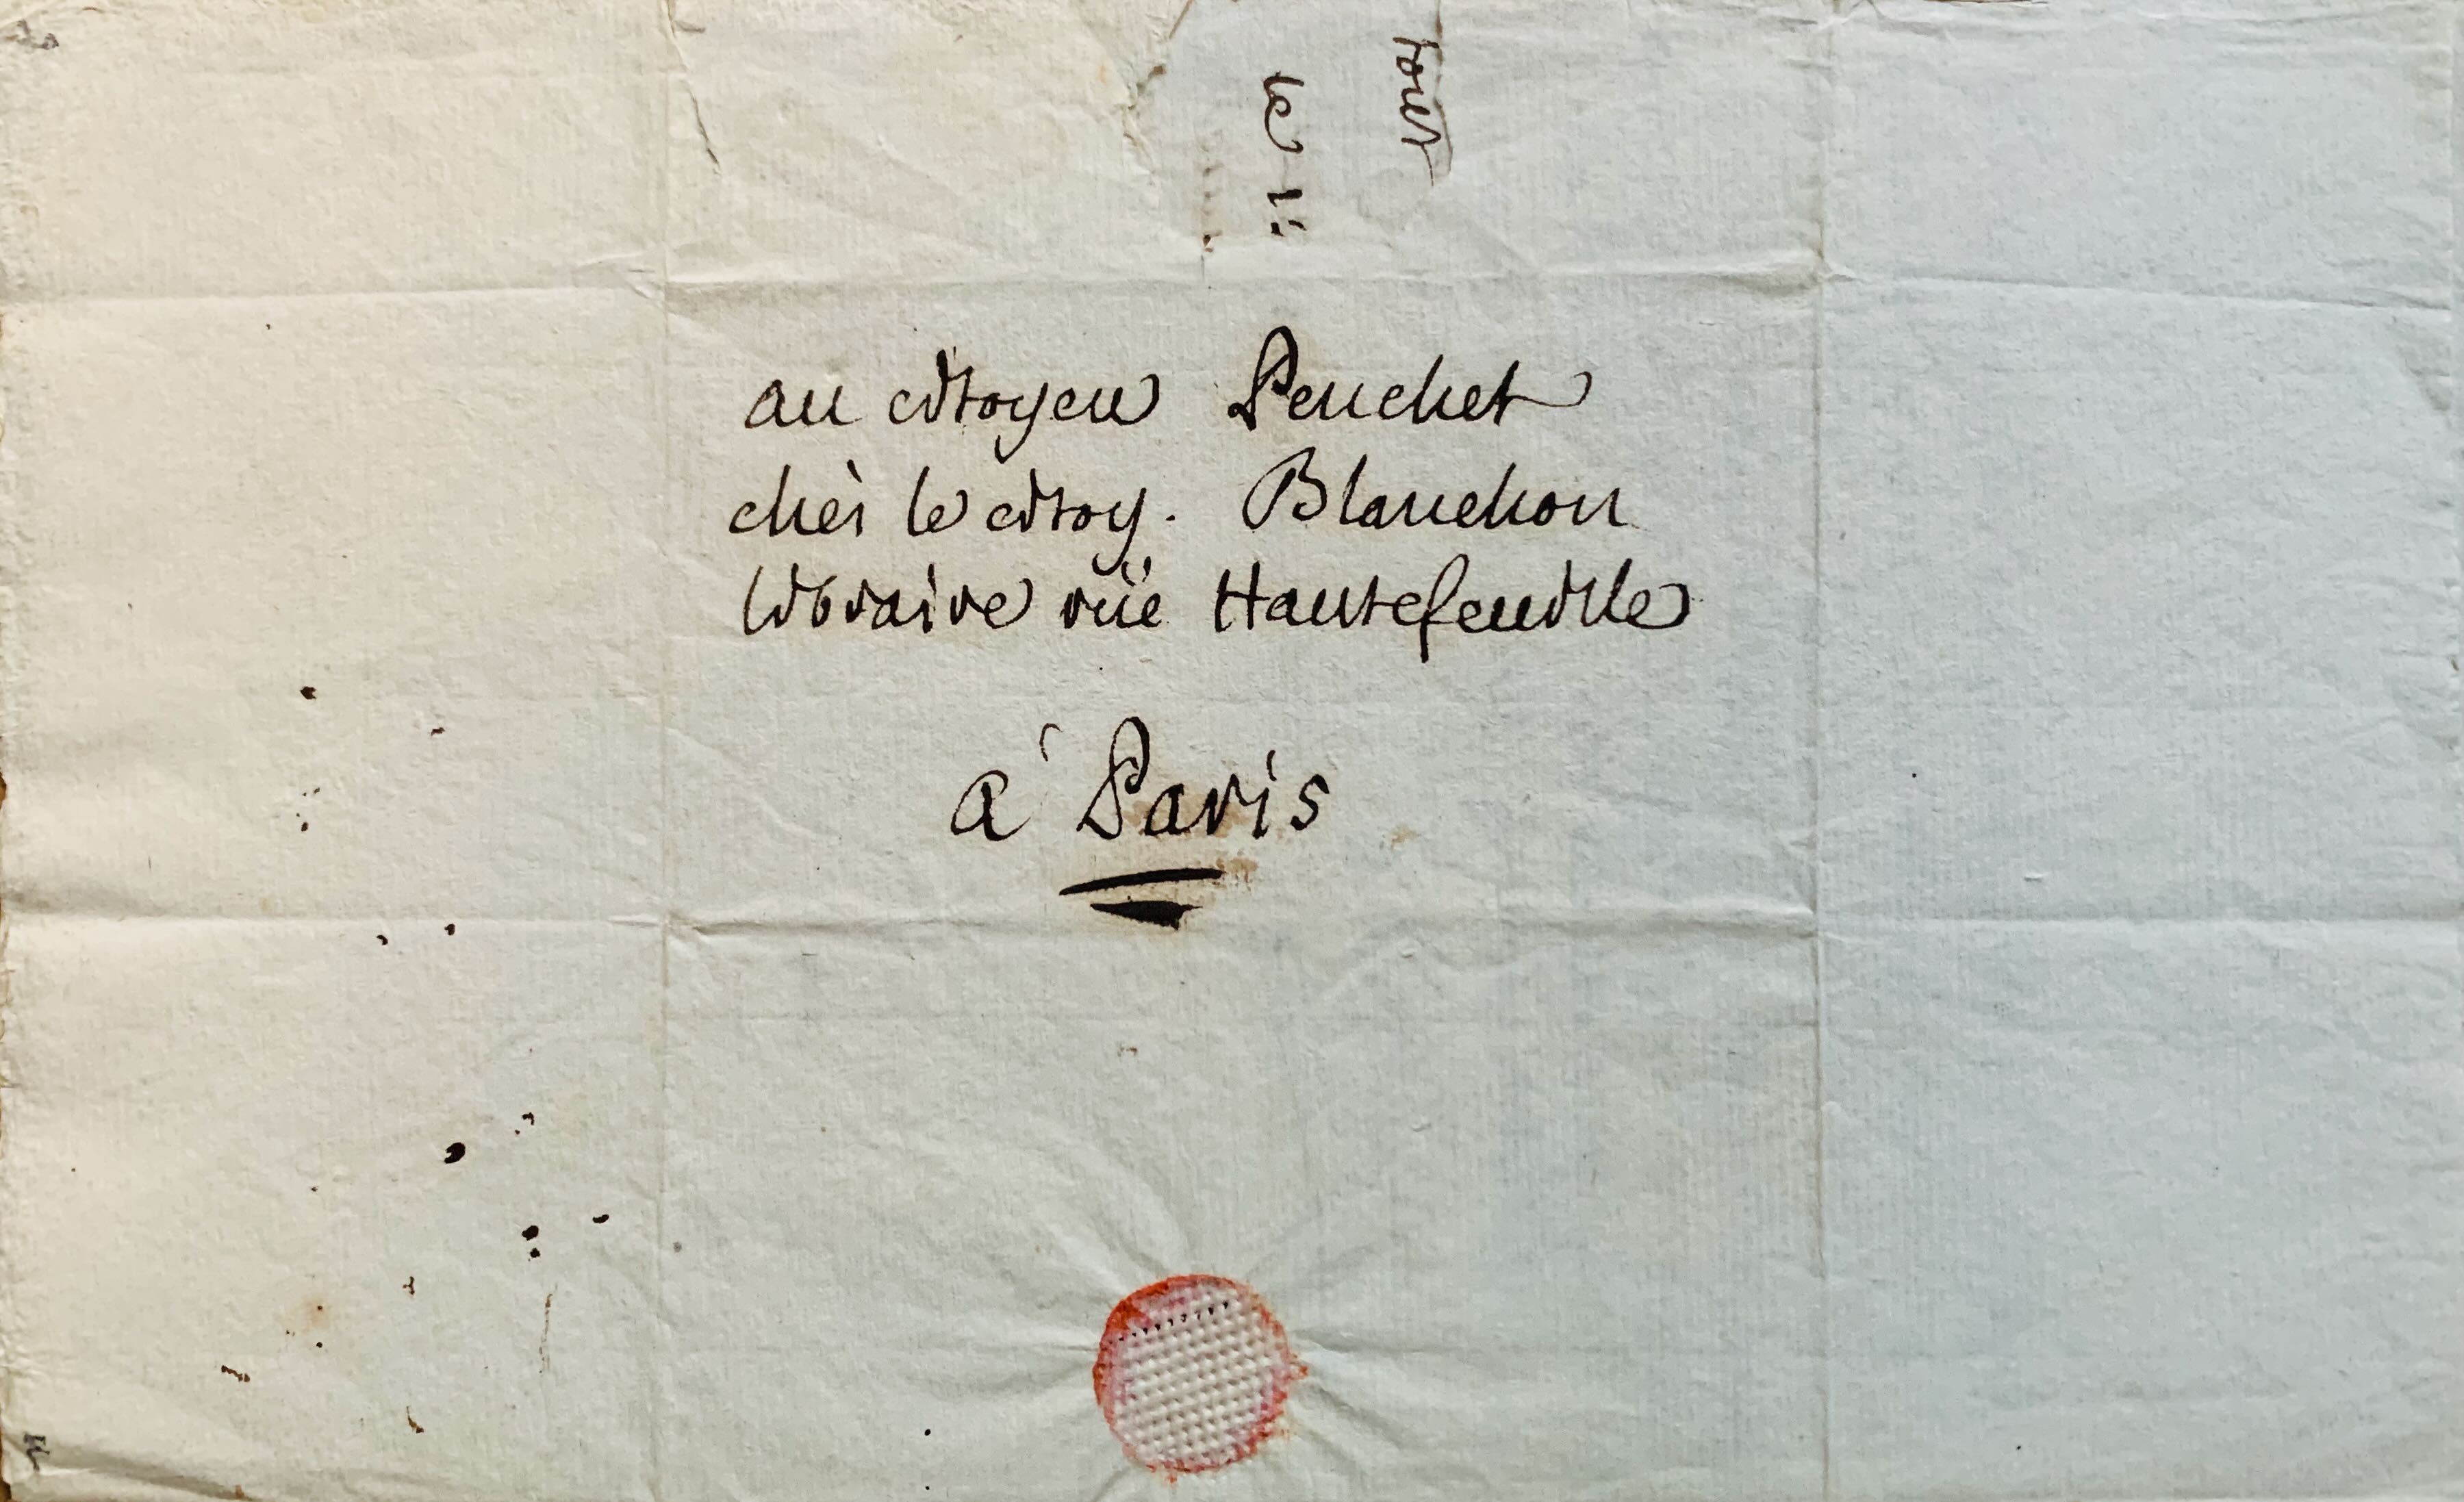 au citoyen Peuchet
chès le citoy. Blanchon
libraire rüe Hautefeuille
à Paris
le 1